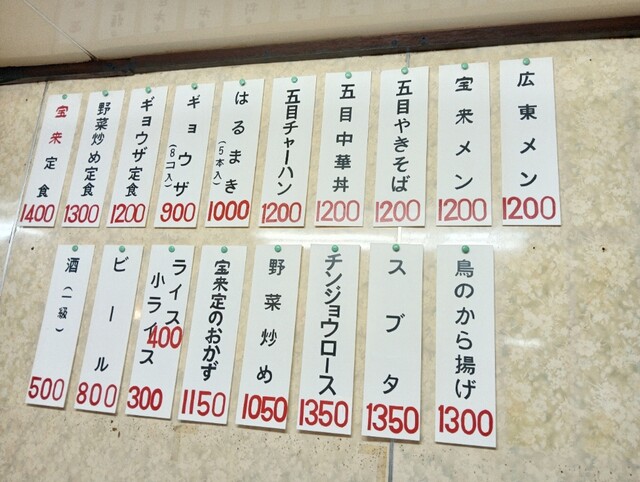 広東メン
1200
宝来メン
1200
五目やきそば
1200
五目中華丼
1200
五目チャーハン
1200
はるまき
(5本入)
1000
ギョウザ
(8コ入)
900
ギョウザ定食
1200
野菜炒め定食
1300
宝来定食
1400
鳥のから揚げ
1300
スブタ
1350
チンジョウロース
1350
野菜炒め
1050
宝来定のおかず
1150
ライス
400
小ライス
300
ビール
800
酒(一級)
500